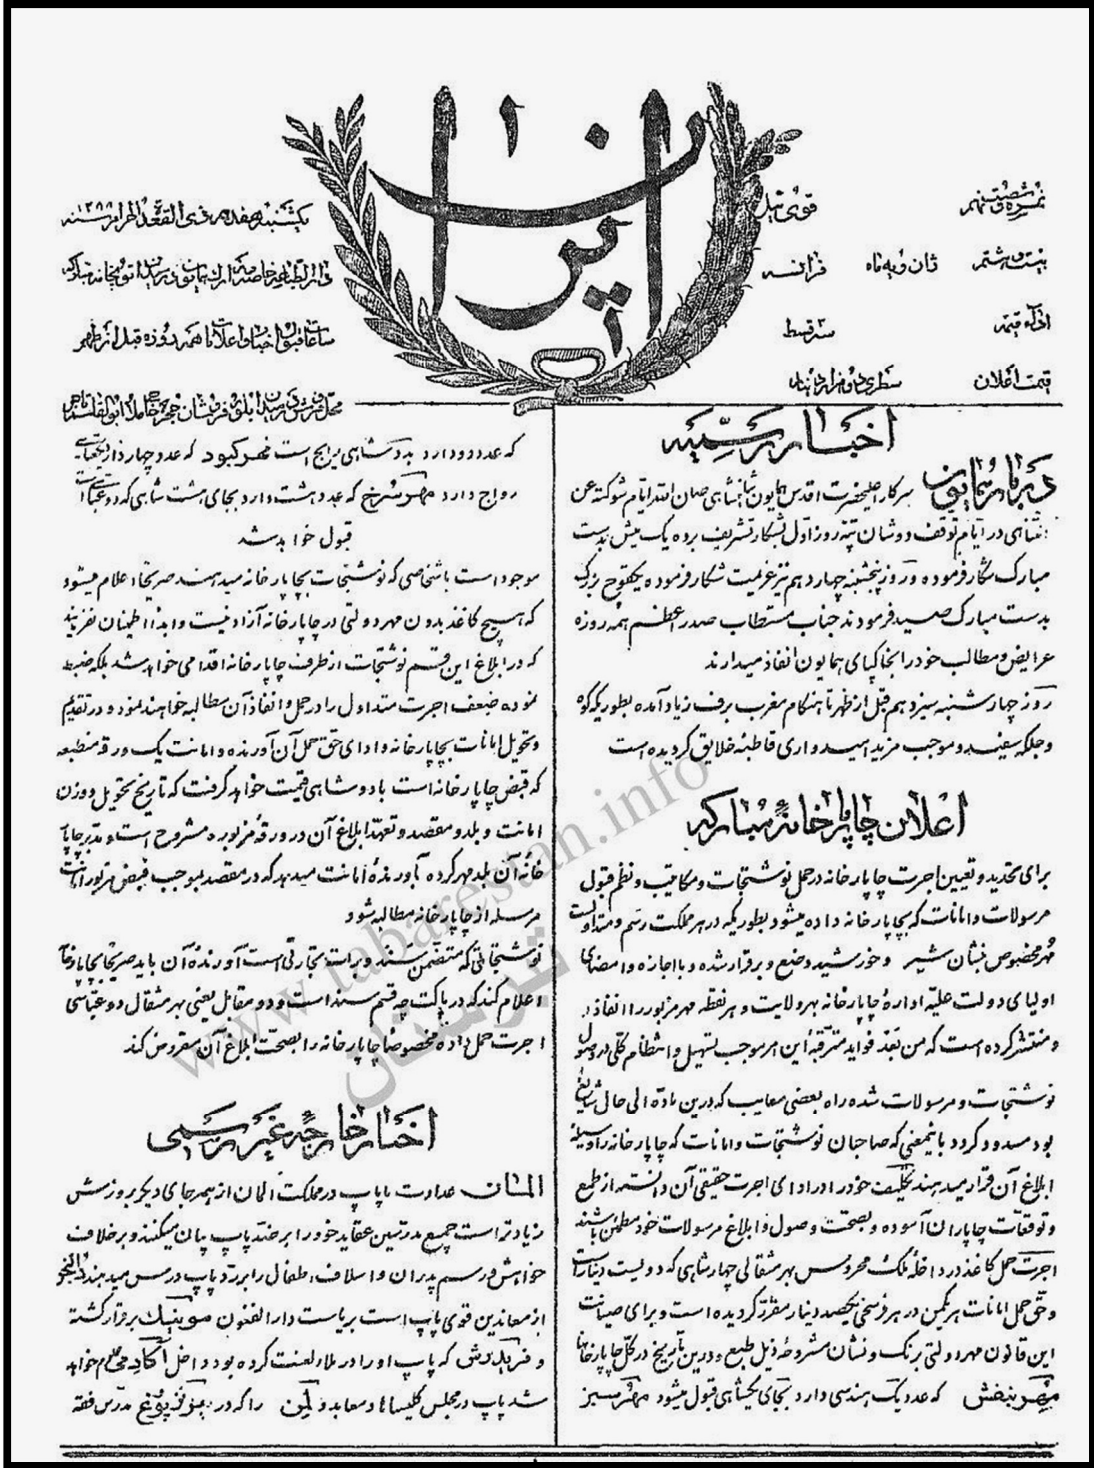 ایران
نمره شصتم
قوی ئیل
بیست و هشتم ژانویه ماه فرانسه
قیمت اعلان سطری دو هزار دینار
یکشنبه هفدهم ذی القعدة الحرام سنه ۱۲۸۸
اخبار رسمیه
دربار همایون سرکار اعلیحضرت اقدس همایون شاهنشاهی
در ایام توقف دوشان تپه روز اول بشکار تشریف برده یک میش بدست
مبارک شکار فرموده و روز پنجشنبه چهاردهم نیز عزیمت شکار فرموده یکقوچ بزرگ
بدست مبارک صید فرمودند جناب مستطاب صدر اعظم همه روزه
عرایض و مطالب خود را بخاکپای همایون انفاذ میدارند
روز چهارشنبه سیزدهم قبل از ظهر تا هنگام مغرب برف زیاد آمده بطوریکه کوه
و جلگه سفید و موجب مزید امیدواری قاطبه خلایق گردیده است
اعلان چاپارخانه مبارکه
برای تحدید و تعیین اجرت چاپارخانه در حمل نوشتجات و مکاتیب و نظم قبول
مرسولات و امانات که بچاپارخانه داده میشود بطوریکه در هر مملکت رسم و متداول است
مهر مخصوص بنشان شیر و خورشید وضع و برقرار شده و با اجازه و امضای
اولیای دولت علیه اداره چاپارخانه بهر ولایت و هر نقطه مهر مزبور را انفاذ
و منتشر کرده است که من بعد فواید مترقبه این امر موجب تسهیل و انتظام کلی در وصول
نوشتجات و مرسولات شده راه بعضی معایب که درین ماده الی حال شایع
بود مسدود گردد باینمعنی که صاحبان نوشتجات و امانات که چاپارخانه را وسیله
ابلاغ آن قرار میدهند تکلیف خود را در ادای اجرت حقیقی آن دانسته از طمع
و توقعات چاپاران آسوده و بصحت وصول و ابلاغ مرسولات خود مطمئن باشند
اجرت حمل کاغذ در داخله ممالک محروسه بهر مثقالی چهار شاهی که دویست دینار است
و حق حمل امانات هر یکمن در هر فرسخی یکصد دینار مقرر گردیده است و برای صیانت
این قانون مهر دولتی برنگ و نشان مشروحه ذیل طبع و درین تاریخ در کل چاپارخانها
مهر بنفش که عدد یک هندسی دارد بجای یکشاهی قبول میشود مهر سبز
که عدد دو دارد بدو شاهی رایج است مهر کبود که عدد چهار دارد
رواج دارد مهر سرخ که عدد هشت دارد بجای هشت شاهی که دو عباسی است
قبول خواهد شد
موجود است باشخاصی که نوشتجات بچاپارخانه میدهند صریحا اعلام میشود
که هیچ کاغذ بدون مهر دولتی در چاپارخانه آزاد نیست و ابدا اطمینان نفرمایند
که در ابلاغ این قسم نوشتجات از طرف چاپارخانه اقدامی خواهد شد بلکه ضبط
نموده ضعف اجرت متداول را در حمل و انفاذ آن مطالبه خواهند نمود و در تقدیم
و تحویل امانات بچاپارخانه و ادای حق حمل آن آورنده و امانت یک ورقه منطبعه
که قبض چاپارخانه است با دو شاهی قیمت خواهد گرفت که تاریخ تحویل و وزن
امانت و بلد و مقصد و تعهد ابلاغ آن در ورقه مزبوره مشروح است و مدیر چاپار
خانه آن بلد مهر کرده بآورنده امانت میدهد که در مقصد بموجب قبض مزبور امانت
مرسله از چاپارخانه مطالبه شود
نوشتجاتی که متضمن سند و برات تجارتی است آورنده آن باید صریحا بچاپارخانه
اعلام کند که در پاکت چه قسم سند است و دو مقابل یعنی بهر مثقال دو عباسی
اجرت حمل داده مخصوصا چاپارخانه را بصحت ابلاغ آن مفروض کند
اخبار خارجه غیر رسمی
المان عداوت با پاپ در مملکت المان از همه جای دیگر بروزش
زیادتر است جمیع مدرسین عقاید خود را بر ضد پاپ بیان میکنند و بر خلاف
خواهش و رسم پدران و اسلاف اطفال را بر رد پاپ درس میدهند
از معاندین قوی پاپ است بریاست دارالفنون مونیک برقرار گشته
که پاپ او را در ملاء لعنت کرده بود داخل آکادمی علوم خواهد
شد پاپ در مجلس کلیساها و معابد را که در مدرس فقه
www.tabarestan.info
تبرستان